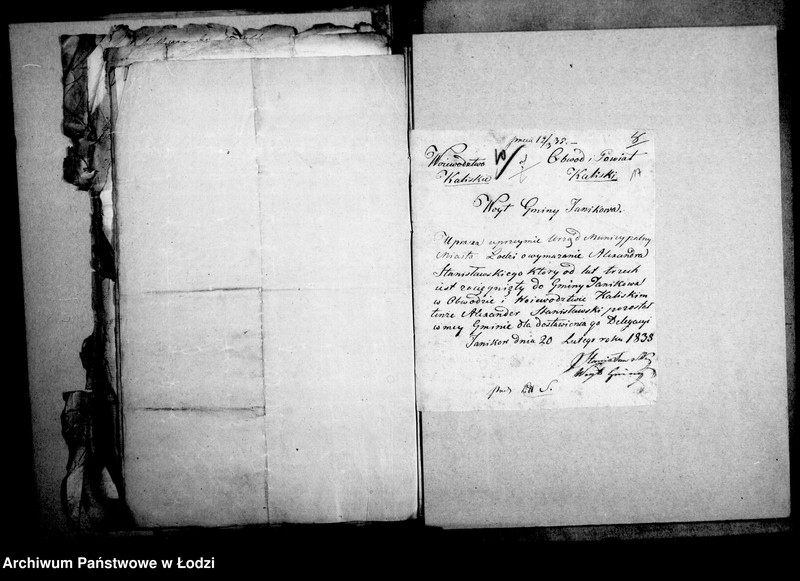 12/3 35.
Woiewodztwo
Kaliskie
Obwod i Powiat
Kaliski
Woyt Gminy Janikowa.
Uprasza uprzeymie Urząd Municypalny
Miasta Łodzi o wymazanie Alexandra
Stanisławskiego ktory od lat trzech
iest zaciągnięty do Gminy Janikowa
w Obwodzie i Woiewodztwie Kaliskim
tenże Alexander Stanisławski pozostał
w mey Gminie dla dostawienia go Delegacyi
Janikow dnia 20 Lutego roku 1835
Woyt Gminy
Archiwum Państwowe w Łodzi